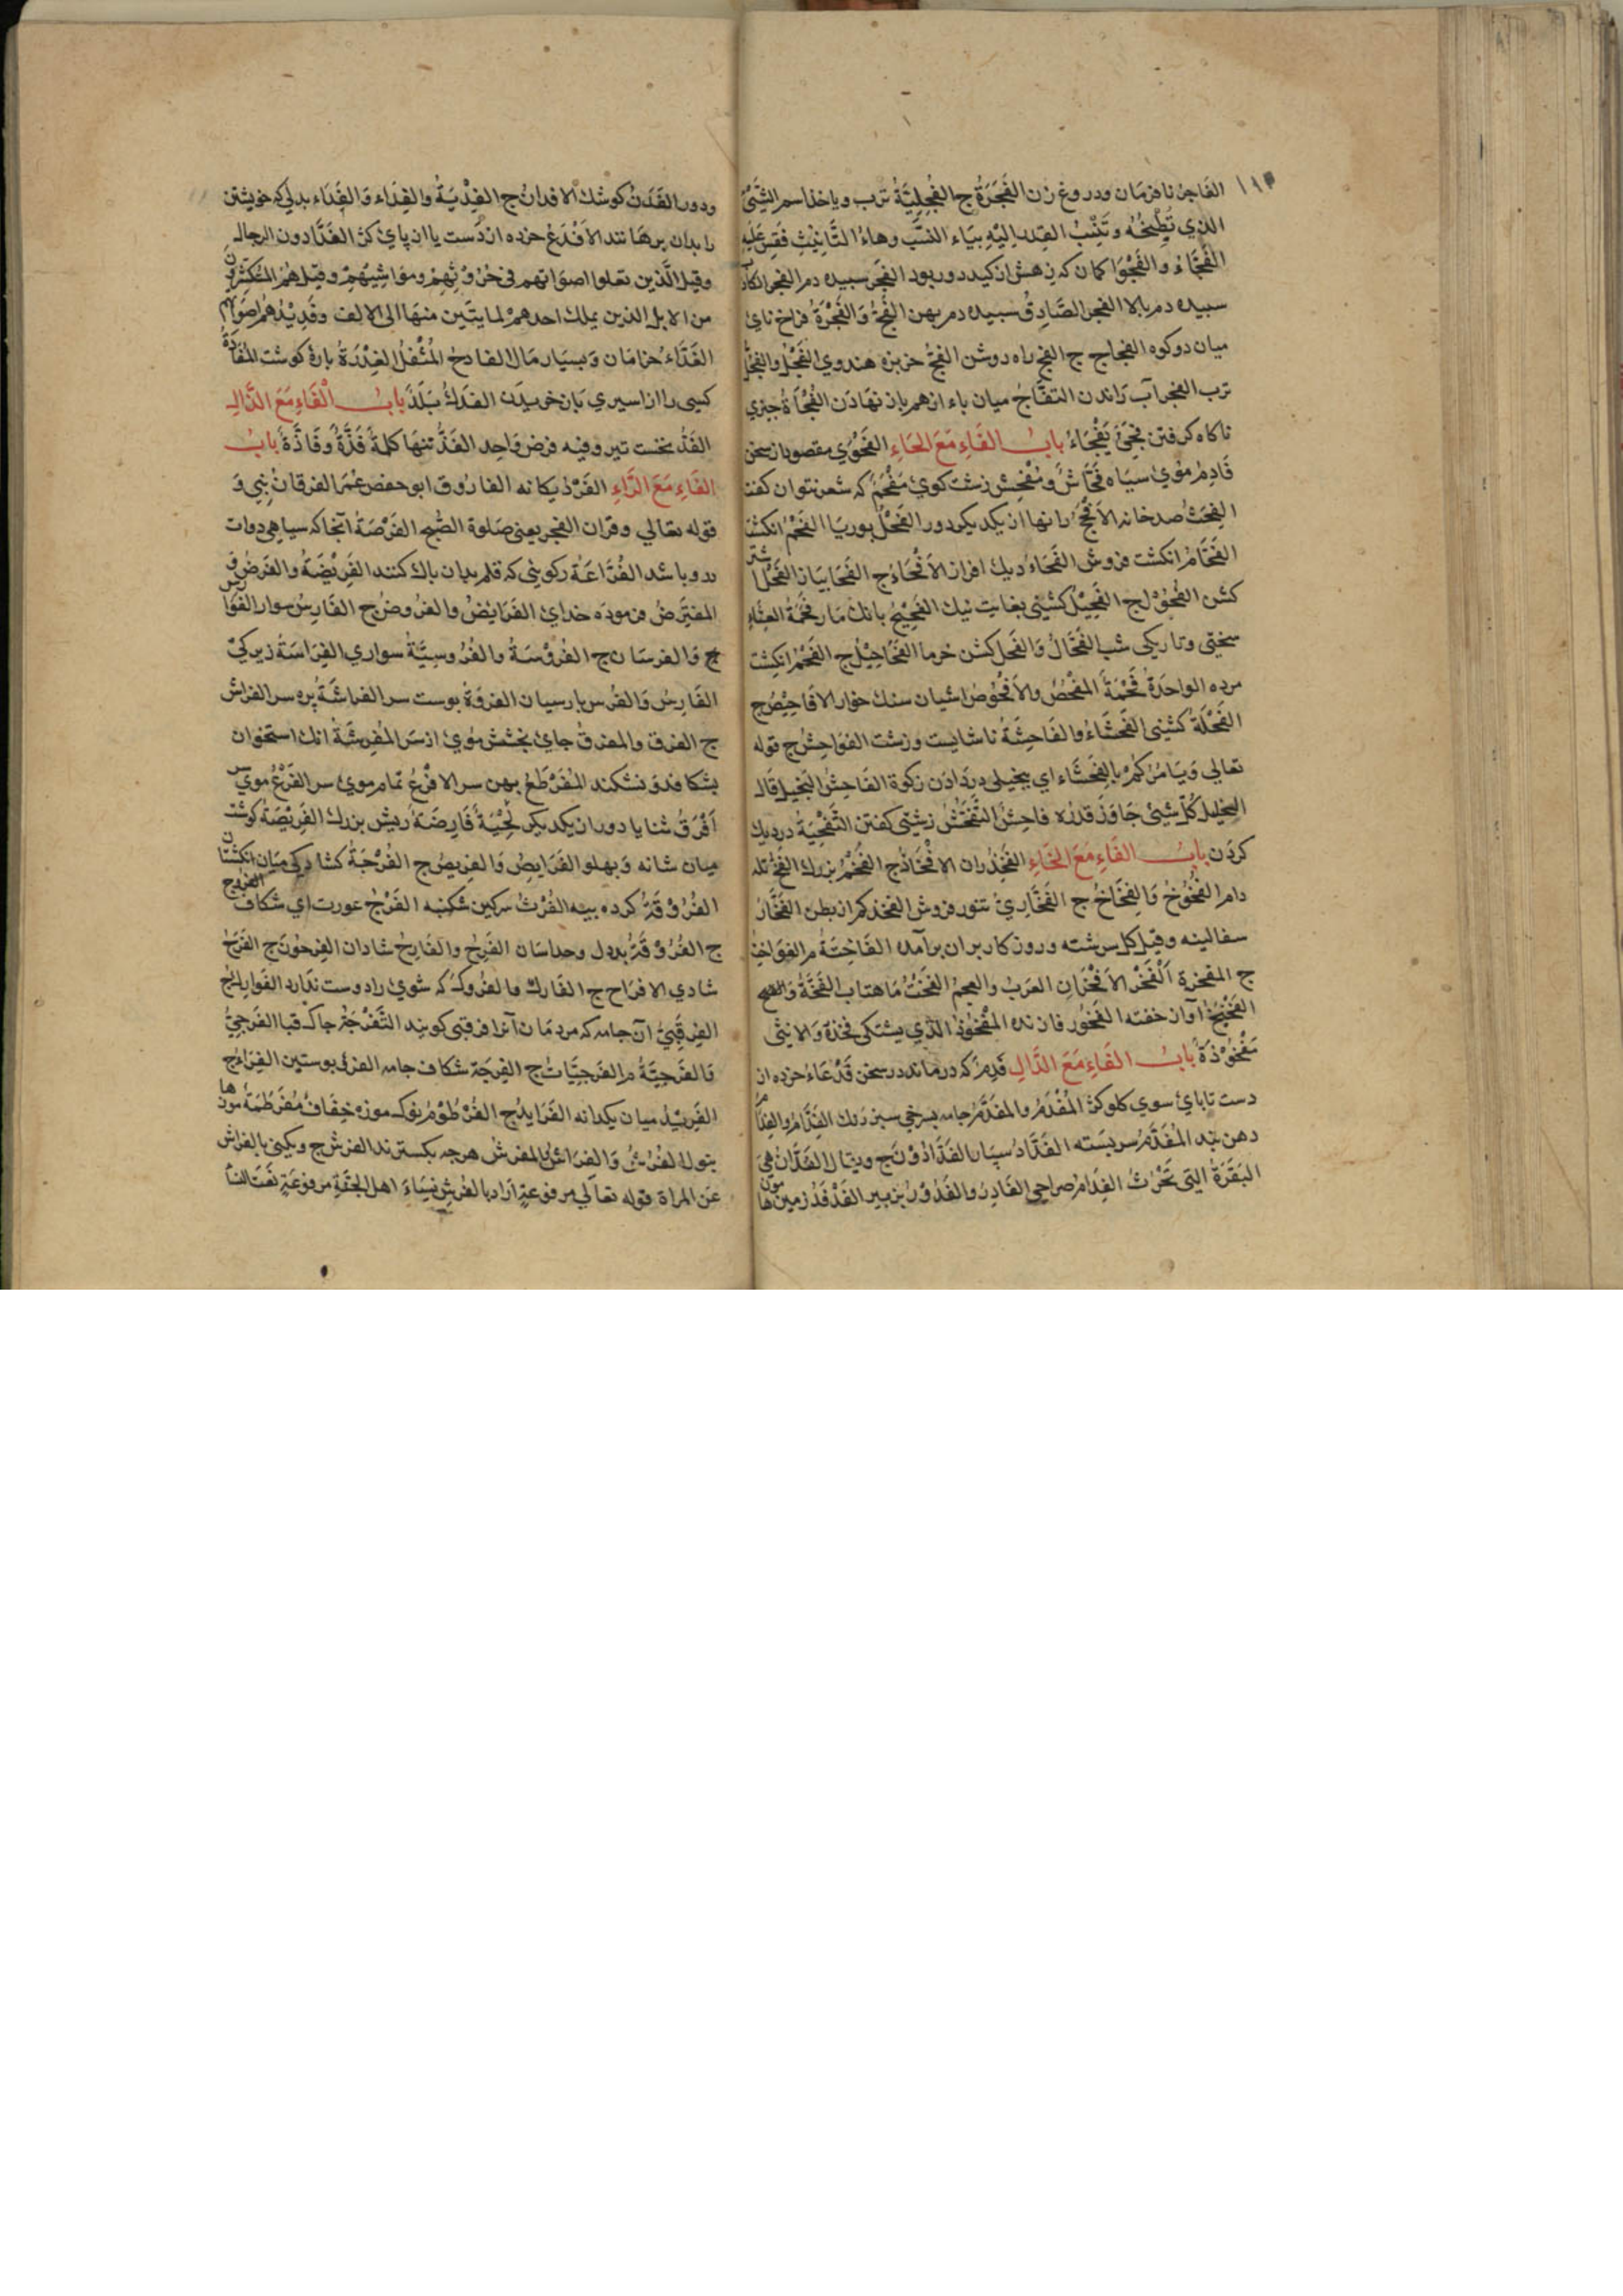 الفَاجِرُ نافرمان ودروغ زن الفَجَرَةُ ج الفُجِلِيَّةُ ترب وياخذ اسم الشَّئُ
الذي تُطْبِخُه وتَنْسِبُ القدر اليْهِ بيَاء النسَّب وهاءُ التَّانِيْثِ فَقِسْ عَلَيه
الفَجَّاءُ والفَجْوَا كمان كه زهش از كيد دور بود الفَجر سبيده دم الفجر الكاذ
سبيده دم بالا الفجر الصَّادِقُ سبيده دم بهن الفَجُّ وَالفَجْرَةُ فراخ ناى
ميان دو كوه الفجاج ج الفج راه روشن الفِجُّ خربزه هندوي الفُجْلُ والفجُلُ
ترب الفجر آب رَاندن التفَّاجُ ميان باء ازهم باز نهادَن الفُجْأةُ جيزي
ناكاه كرفتن فجِىَ يَفْجَاءُ بابُ الفَاءِ مَعَ الحَاءِ الفَحْوَي مقصود از سخن
فَاحِمُ مُوي سيَاه فَحَّاشُ وَمُفْحِشُ زشت كوي مَفْحَمُ كه شعر نتوان كفت
الفِحَثُ صد خانه الأفْحَجُ رانها از يكديكر دور الفَحْلُ بوريَا الفَحْمُ انكشت
الفَحَّامُ انكشت فروش الفَحَاءُ ديك افراز الأفْحَاءُ ج الفَحَا بيَاز الفَحْلُ شتر
كشن الفُحُوْل ج الفَحِيْلُ كشنى بغايت نيك الفَحِيْحُ بانك مَار فَحْمَةُ العِشَاءِ
سختى وتاريكى شب الفُحَّالُ وَالفَحل كشن خرما الفَحَاحِيْلُ ج الفَحْمُ انكشت
مرده الواحَدَةُ فَحْمَةُ المفْحَصُ والأفْحُوْصُ اشيان سنك خوار الافَاحِيْصُ ج
الفَحْلَةُ كشنى الفَحشَاءُ والفَاحِشَةُ ناشايست وزشت الفَوَاحِشُ ج قوله
تعالي وَيَامُرُكُمْ بالفَحْشَاء اى ببخيلى در دَادَن زكوة الفَاحِشُ البَخيل قَال
الخليل كُلّ شيئى جَاوَزَ قدره فاحِشُ التَّفَحُّشُ زشتى كفتن التَّفْحِيَةُ در ديك
كردَن بابُ الفَاءِ مَعَ الخَاءِ الفَخِذُ ران الافْخَاذُ ج الفَخْمُ بزرك الفخُّ تله
دام الفُخُوْخُ وَالفِخَاخُ ج الفَخَّارِيُ تنور فروش الفخذ كم از بطن الفَخَّارُ
سفالينه وقيل كل سرشته وروزكار بران برآمده الفَاخِتَةُ م الفوَاخِتُ
ج المفخرة اَلْفَخْرُ الأفْخَرَانِ العَرَبُ والعجم الفَخْتُ مَاهتاب الفَخَّةُ وَ
الفَخِيْخُ آواز خفته الفَخُوْر نازنده المَفْخُوْذُ الذي يشتكى فَخِذَهُ وَالانثى
مَفْخُوْذَةُ بابُ الفَاءِ مَعَ الدَّالِ فَدِمُ كه درماند در سخن فَدْعَاءُ خرده از
دست تا باىُ سوى كلوكژ المُفْدَمُ والمفَدَّمُ جامه بسرخى سير رنك الفِدَامُ والفدَّام
دهن بند المُفَدَّمُ سر بسَته الفَدَّادُ سپيار الفَدَّادُوْنَ ج ويقال الفَدَّانُ هِيَ
البَقَرَةُ التِى تَحْرُثُ الفِدَامُ صراحِى الفَادِرُ والفَدُوْرُ بز پير الفَدْفَدُ زمين ها مون
ودور الفَدَنُ كوشك الافدانُ ج الفِدْيَةُ والفِدَاء وَالفَدَاء بدلى كه خويشتن
را بدان برهَانند الاَفْدَعُ خرده از دَست يا از پاىُ كژ الفَدَّادون الرجال
وقيل الَّذين تعلوا اصوَاتهم فى حُرُوْثِهِمْ ومَوَاشِيْهِمْ وَقيل هُمُ المُكثِرُوْنَ
من الابل الذين يملك احدهمْ لمايتَين منهَا الى الالف وفَدِيْدُهُمْ اصوَاتهم
الفَدَّاءُ خرامَان وَبسيَار مَال الفادِحُ المُثْقِلُ الفِدْرَةُ بارۀ كوشت المُفَادَاةُ
كسى را از اسيرى بَاز خريدَن الفَدَكُ بَلَدَ بابُ اَلْفَاءِ مَعَ الذَّالِ
الفَذُّ نخست تير وفيه فرض وَاحِد الفَذُّ تنهَا كلمةُ فَذَّةُ وفَاذَّةُ بابُ
الفَاءِ مَعَ الرَّاءِ الفَرْدُ يكانه الفَارُوق ابو حفص عُمَر الفرقانُ نِبى وَ
قوله تعَالي وقران الفجر يعنى صَلوة الصُّبح الفَرْضَةُ آنجا كه سياهى دوات
در و باشد الفُرَّاعَةُ ركوئى كه قلم بدان باك كنند الفَرِيْضَةُ والفَرضُ و
المفتَرَضُ فرموده خداىُ الفَرَايضُ والفُرُوضُ ج الفَارِسُ سوار الفَوَارس
ج وَالفرسَان ج الفُرُوْسَةُ والفُرُوسِيَّةُ سوارى الفِرَاسَةُ زيركىْ
الفَارِسُ وَالفُرس پارسيان الفَروَةُ بوست سر الفراشَةُ پره سر الفراش
ج الفرق والمفرقُ جاى بخشش موى از سَر المُفرِشَةُ انك استخوان
بشكافد وَنشكند المُفَرْطَحُ بهن سر الافْرَعُ تمام موى سر الفَرْعُ موي سر
اَفْرَقُ شنايا دور از يكديكر لِحْيَةُ فَارِضَةُ ريش بزرك الفَرِيْصَةُ كوشت
ميان شانه وَبهلو الفَرَايص وَالفريصُ ج الفُرْجَةُ كشادكى ميَان انكشتان
الفُرُوْقَةُ كرده بيه الفَرْثُ سركين شكنبه الفَرْجُ عورت اي شكاف الفروج
ج الفُرُوْقَةُ بددل وحداسَان الفَرِحُ والفَارِحُ شادان الفرحُونَ ج الفَرَحُ
شادى الافرَاح ج الفَارك والفَرُوكُ كه شوى را دوست ندَارد الفَوَارِكُ ج
الفِرقِبىُّ آن جامه كه مردمَان آنرا فرقبى كويند التَّفْرجَةُ جاك قبا الفَرَجِيُّ
وَالفَرَجيَّةُ م الفَرَجِيَّاتُ ج الفرجَة شكاف جامه الفرو بوستين الفِرَاءُ ج
الفَرِيْدُ ميان يكدانه الفَرَايدُ ج الفُرْطُوْمُ نوك موزه خِفَافُ مُفَرْطَمَةُ موزه ها
بنوك الفُرُشُ وَالفراشُ المفرشُ هرچه بكسترند الفرش ج ويكنى بالفراش
عَن المراة قوله تعَالى مرفوعةٍ ارَاد بالفرشِ نِسَاءَ اهل الجنَّةِ مرفوعَةٍ نعت النساء